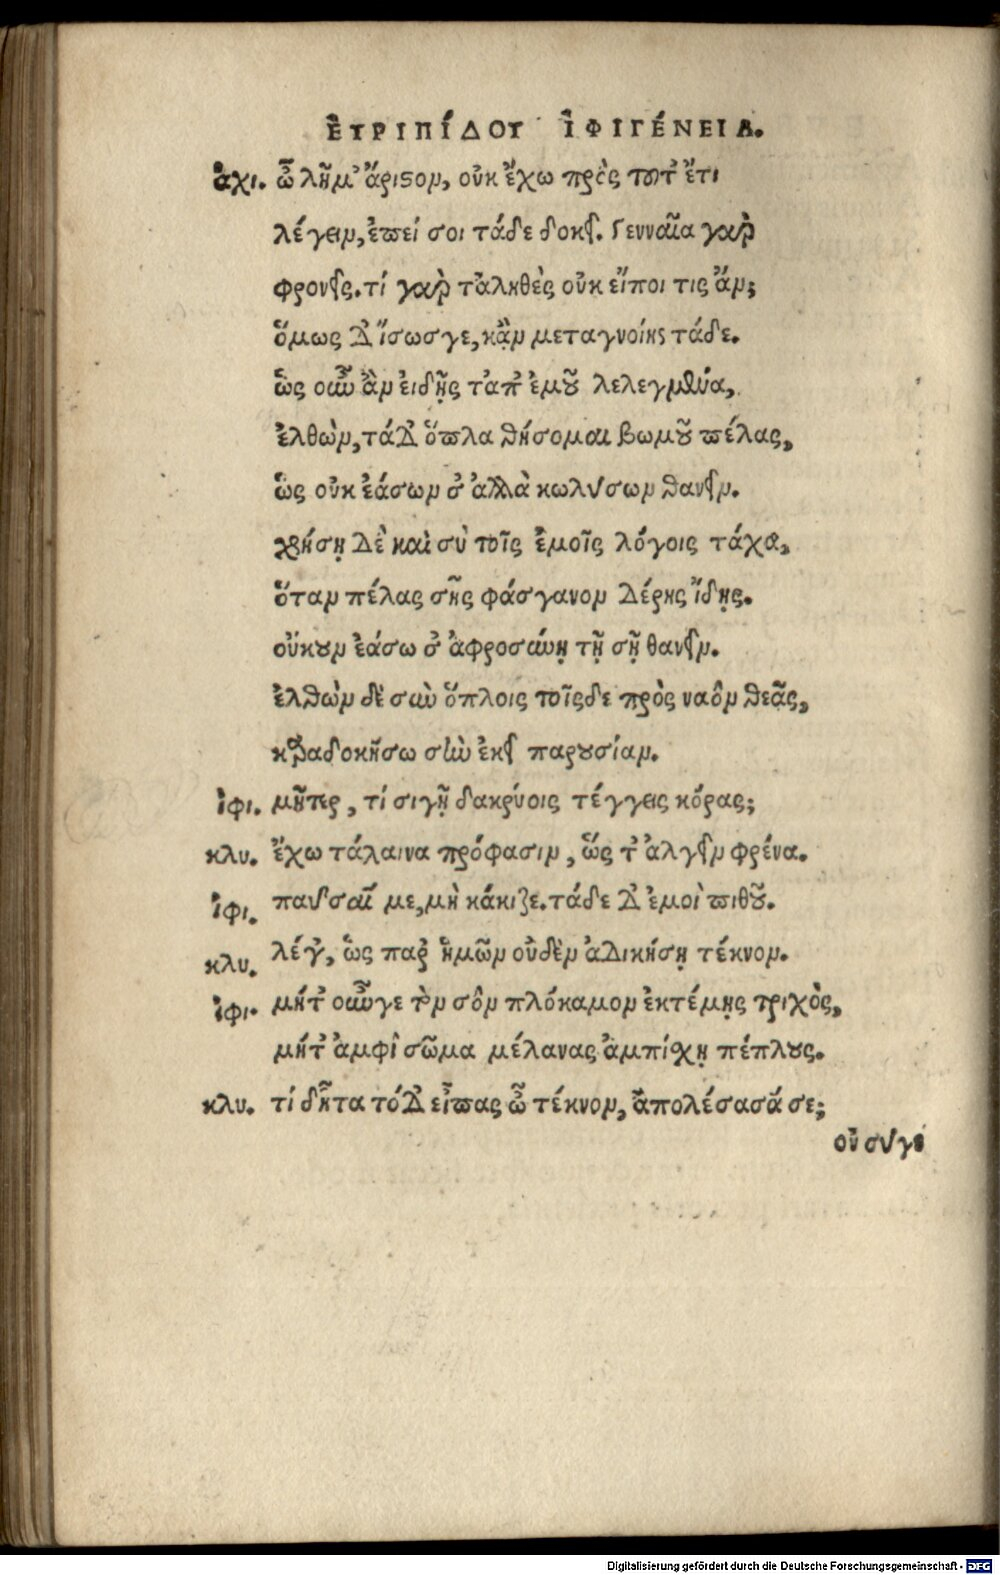 ἘΥΡΙΠΊΔΟΥ ἸΦΙΓΈΝΕΙΑ.
ἀχι. ὦ λῆμ' ἄριστον, οὐκ ἔχω πρὸς τοῦτ' ἔτι
λέγειν, ἐπεί σοι τάδε δοκεῖ. Γενναῖα γὰρ
φρονεῖς. τί γὰρ τἀληθὲς οὐκ εἴποι τις ἄν;
ὅμως δ' ἴσως γε, κᾂν μεταγνοίης τάδε.
ὡς οὖν ἂν εἰδῇς τἀπ' ἐμοῦ λελεγμένα,
ἐλθὼν, τάδ' ὅπλα θήσομαι βωμοῦ πέλας,
ὡς οὐκ ἐάσων σ' ἀλλὰ κωλύσων θανεῖν.
χρήσῃ δὲ καὶ σὺ τοῖς ἐμοῖς λόγοις τάχα,
ὅταν πέλας σῆς φάσγανον δέρης ἴδῃς.
οὔκουν ἐάσω σ' ἀφροσύνῃ τῇ σῇ θανεῖν.
ἐλθὼν δὲ σὺν ὅπλοις τοῖςδε πρὸς ναὸν θεᾶς,
καραδοκήσω σὴν ἐκεῖ παρουσίαν.
ἰφι. μῆτερ, τί σιγῇ δακρύοις τέγγεις κόρας;
κλυ. ἔχω τάλαινα πρόφασιν, ὥς τ' ἀλγεῖν φρένα.
ἰφι. παῦσαί με, μὴ κάκιζε. τάδε δ' ἐμοὶ πιθοῦ.
κλυ. λέγ', ὡς παρ' ἡμῶν οὐδὲν ἀδικήσῃ τέκνον.
ἰφι. μήτ' οὖν γε τὸν σὸν πλόκαμον ἐκτέμῃς τριχὸς,
μήτ' ἀμφὶ σῶμα μέλανας ἀμπίσχῃ πέπλους.
κλυ. τί δῆτα τόδ' εἶπας ὦ τέκνον, ἀπολέσασά σε;
οὐ σύγε